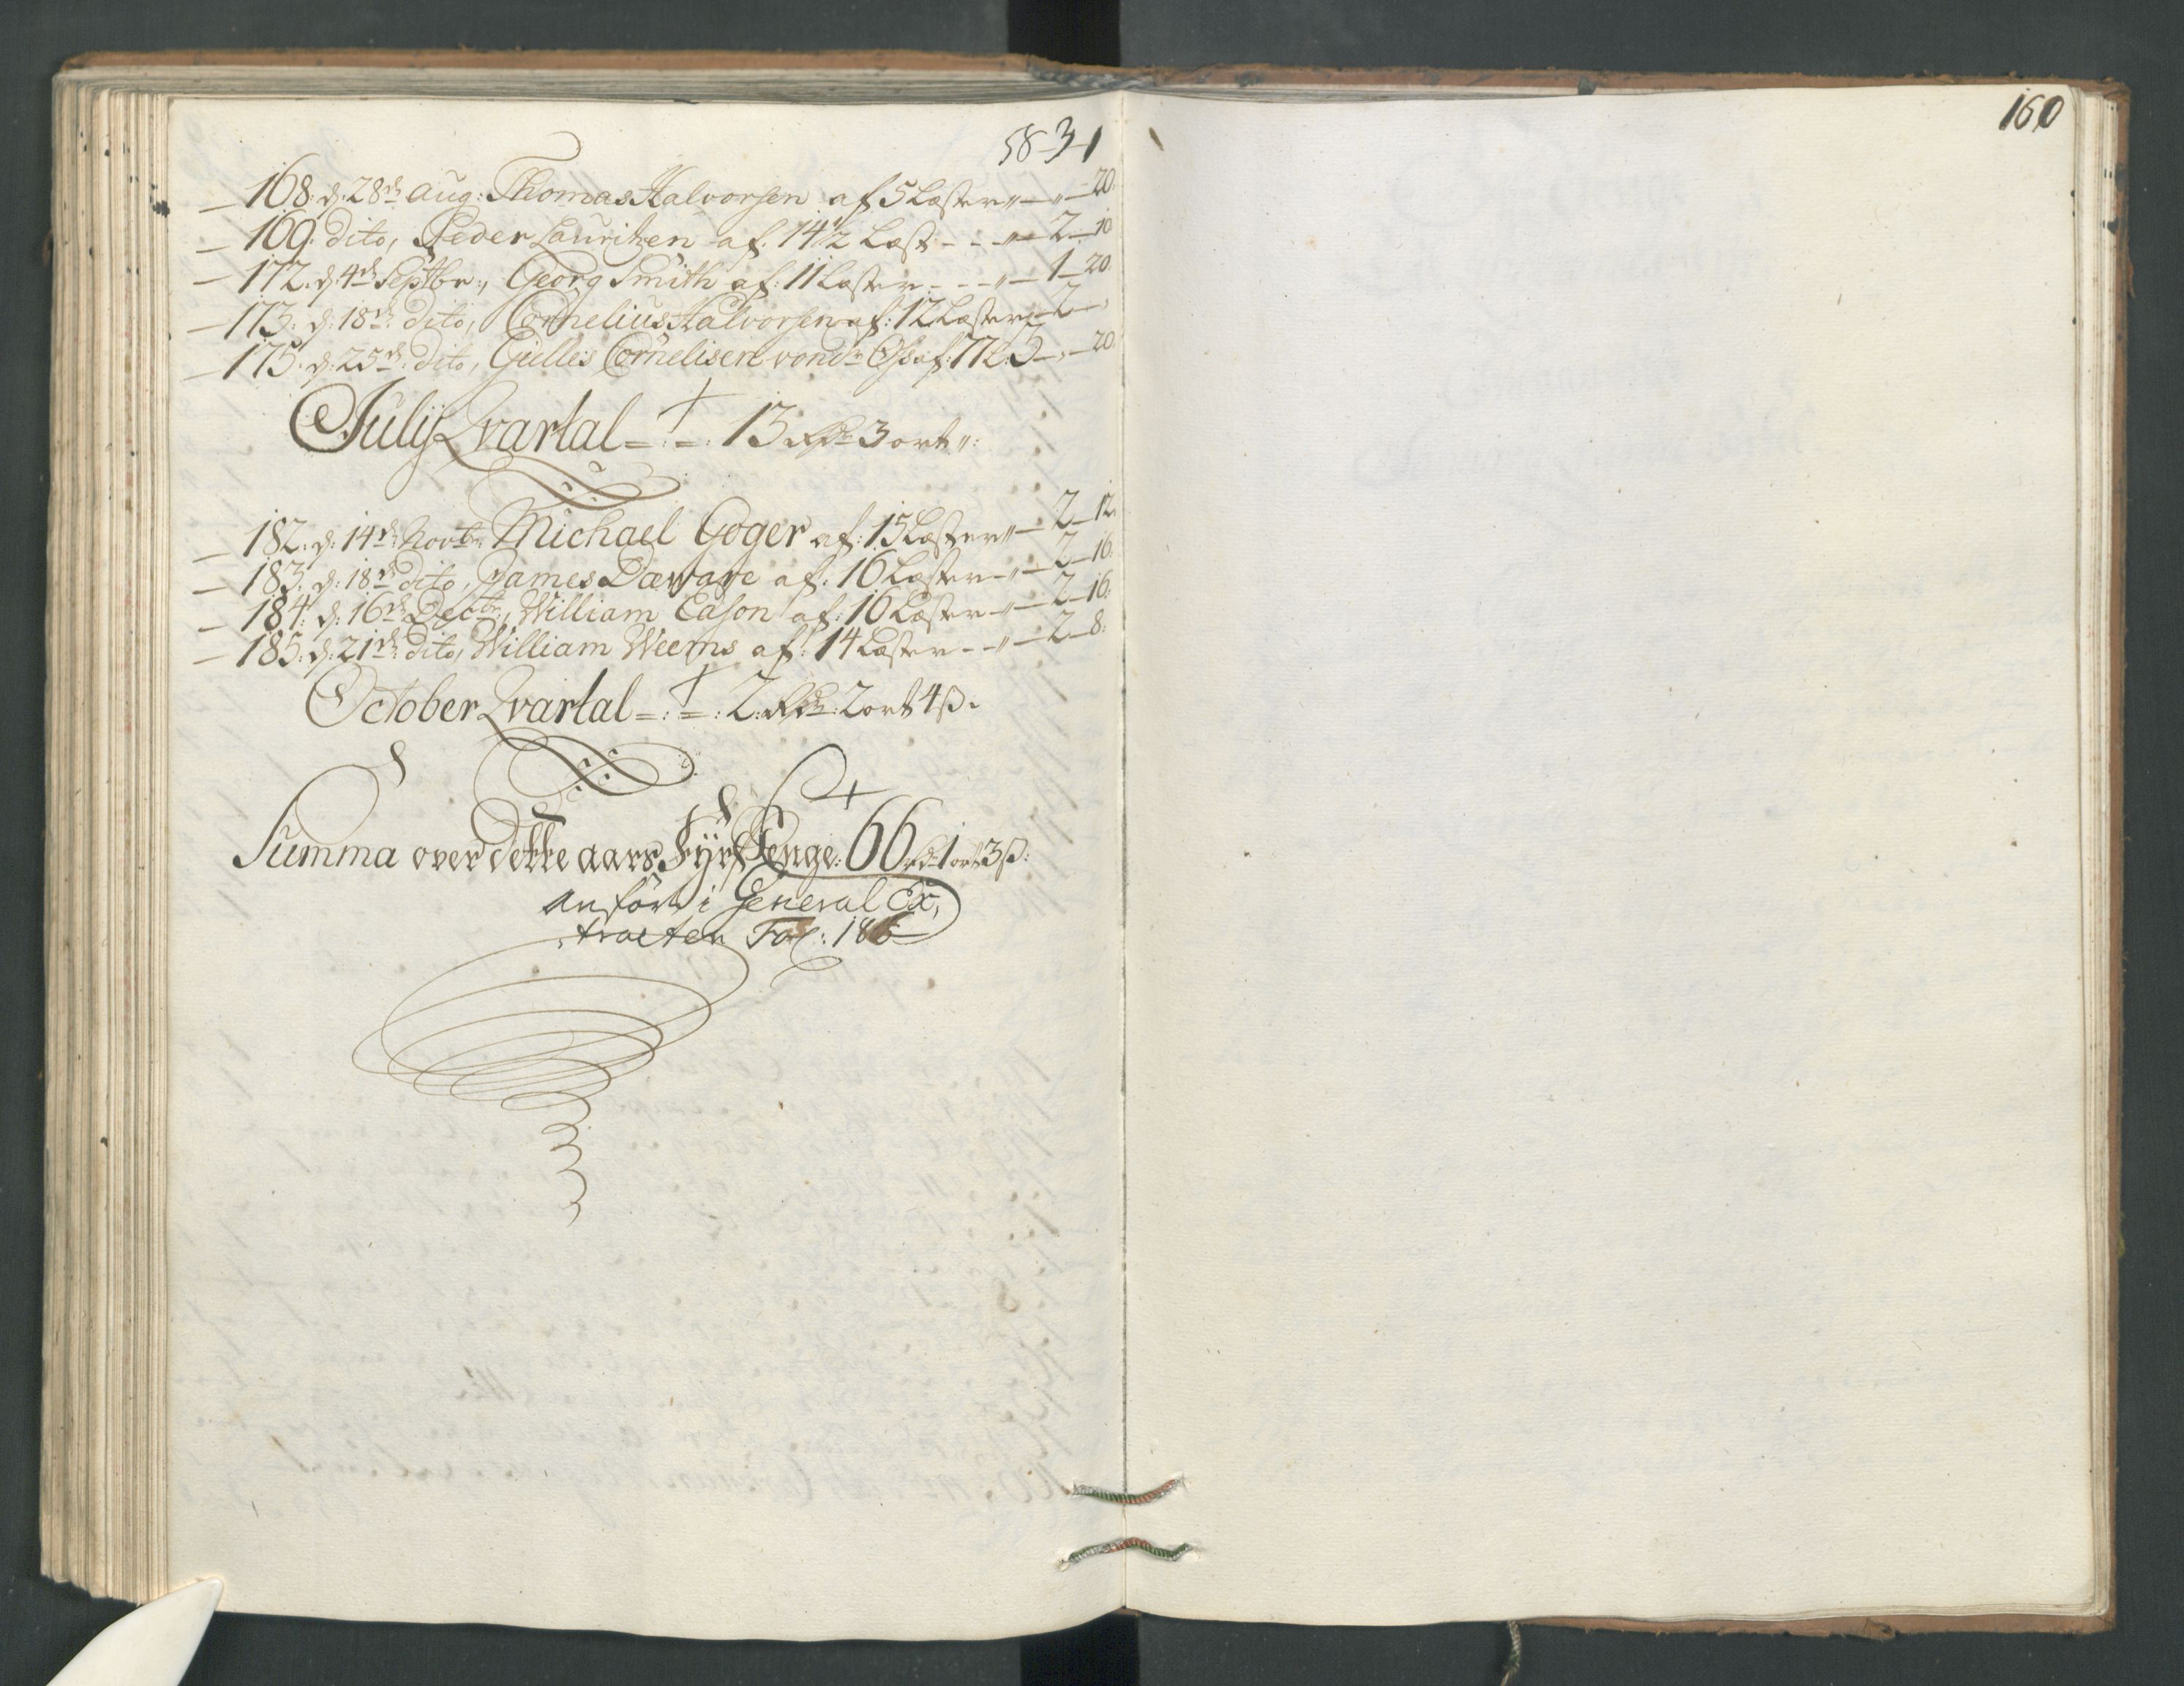 58-3-1
160
— 168: d: 28de Aug: Thomas Halvorsen af 5 Læster „—„—20:
— 169: dito, Peder Lauritzen af: 14½ Læst - - -„—2—10
— 172: d: 4de Septbr:, Georg Smith af: 11 Læster - - -„—1—20:
— 173: d: 18de: dito, Cornelius Halvorsen af: 12 Læster „—2—„
— 175: d: 25de: dito, Gilles Cornelisen af: 77 L: 3—„—20:
Julij Qvartal =:=: 13 Rdr 3 ort „:
— 182: d: 14de: Novbr: Michael Goger af: 15 Læster „—2—12:
— 183: d: 18de dito, James Daware af: 16 Læster -„—2—16:
— 184: d: 16de Decbr:, William Eason af: 16 Læster -„—2—16:
— 185: d: 21de: dito, William Weems af: 14 Læster - -„—2—8:
October Qvartal =:=: 2: Rdr: 2 ort 4 ß:
Summa over dette aars Fyr Penge: 66 rdr 1 ort 3 ß:
anført i General Ex,
tracten Fol: 186